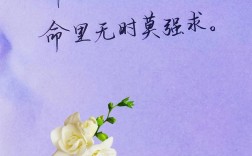 命里无时莫强求。